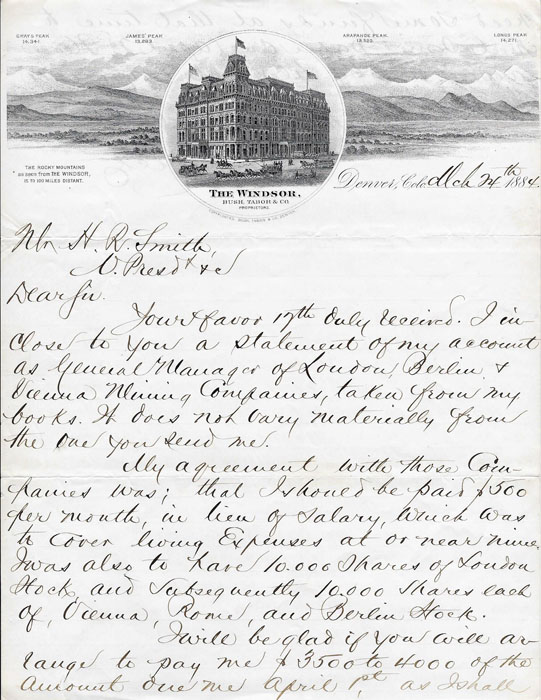 GRAYS PEAK
14,341.
JAMES' PEAK
13,283
ARAPAHOE PEAK
13,520
LONGS PEAK
14,271.
THE ROCKY MOUNTAINS
AS SEEN FROM THE WINDSOR,
15 TO 100 MILES DISTANT.
THE WINDSOR,
BUSH, TABOR & CO.
PROPRIETORS.
Denver, Colo. Mch 24th 1884.
Mr H. R. Smith,
V. Presdt &c
Dear Sir.
Your favor 17th duly received. I in-
close to you a statement of my account
as General Manager of London, Berlin &
Vienna Mining Companies, taken from my
books. It does not vary materially from
the one you send me.
My agreement with those Com-
panies was; that I should be paid $500
per month, in lieu of Salary, which was
to cover living Expenses at or near mine
I was also to have 10.000 Shares of London
Stock, and Subsequently 10.000 Shares each
of, Vienna, Rome, and Berlin Stock.
I will be glad if you will ar-
range to pay me $3500 to 4000 of the
amount due me April 1st, as I shall